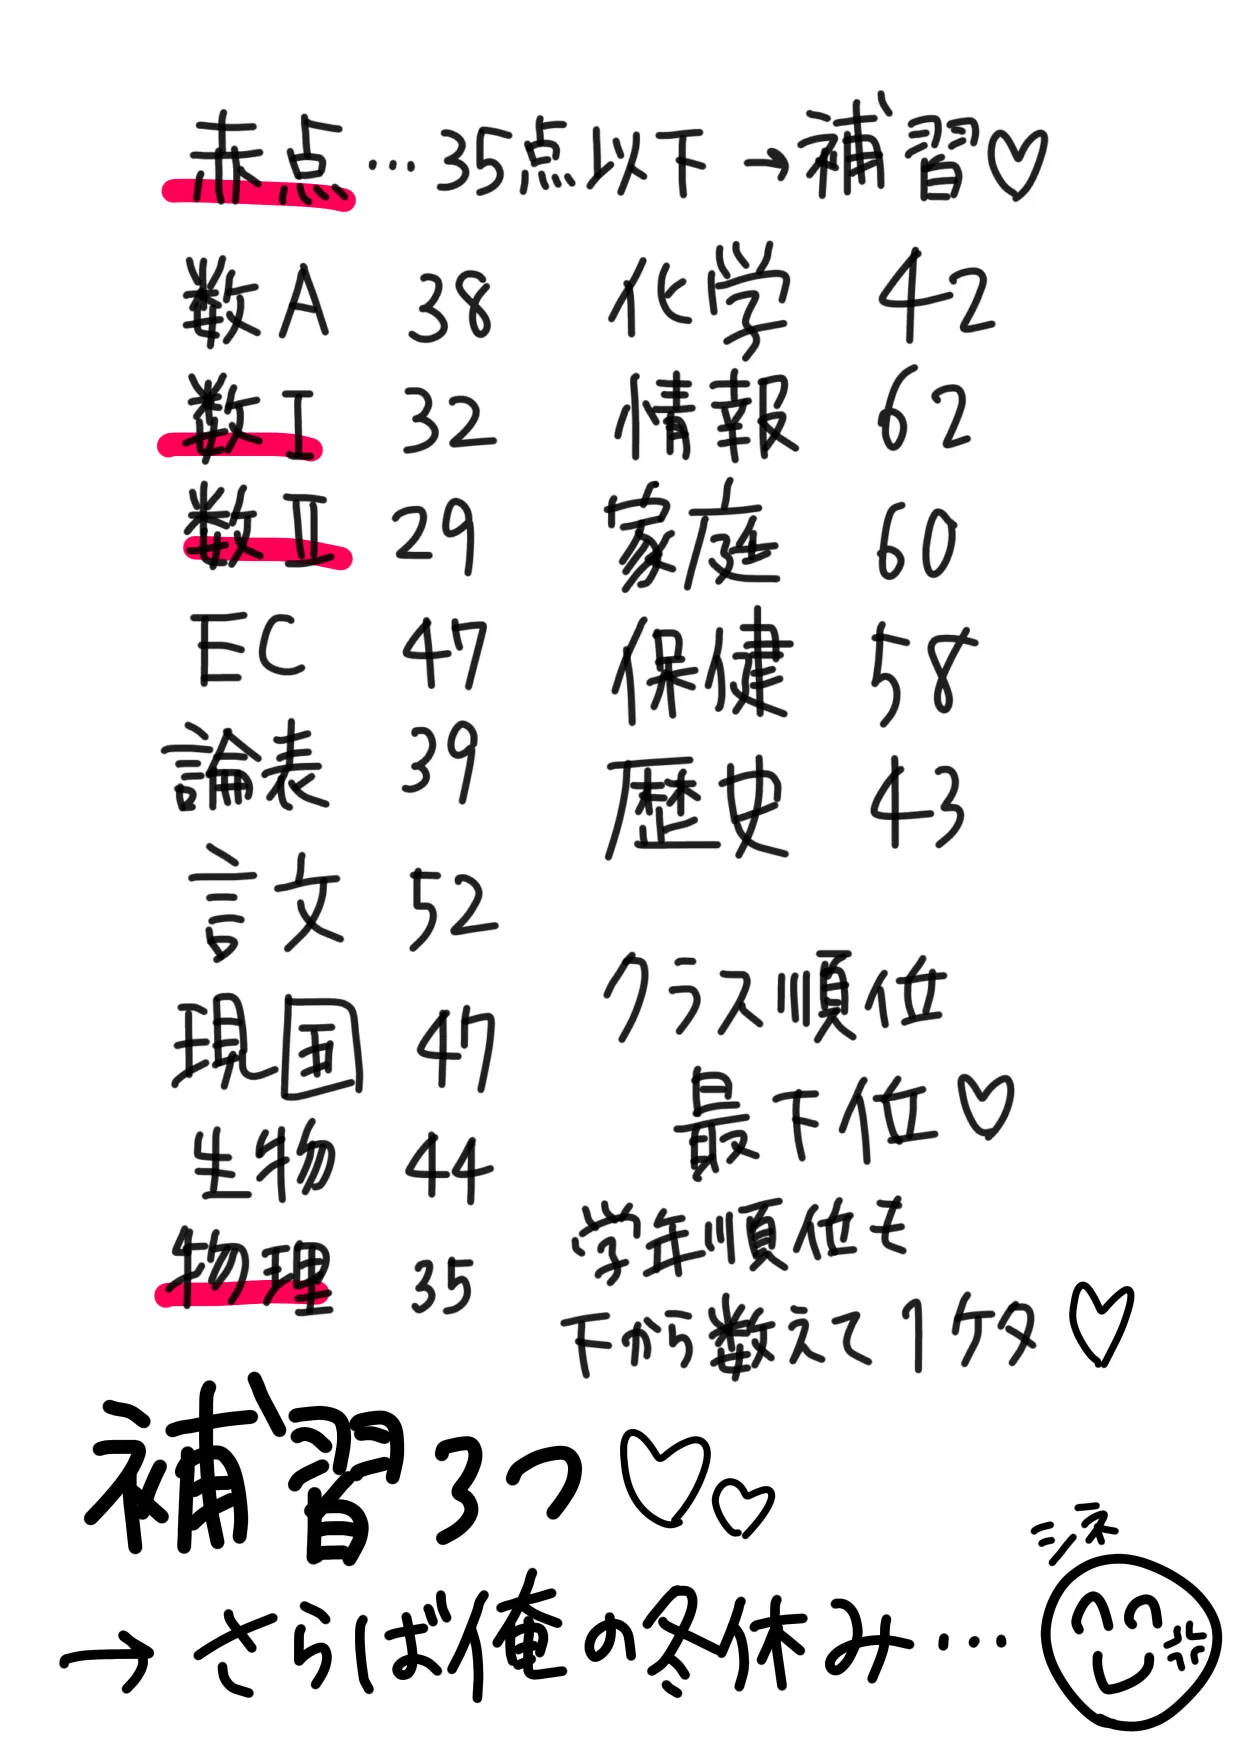 赤点…35点以下→補習♡
数A 38
数I 32
数II 29
EC 47
論表 39
言文 52
現国 47
生物 44
物理 35
化学 42
情報 62
家庭 60
保健 58
歴史 43
クラス順位
最下位♡
学年順位も
下から数えて1ケタ♡
補習3つ♡♡
→さらば俺の冬休み…
シネ